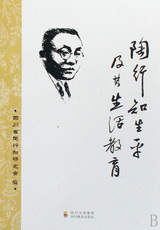 陶行知生平
及其生活教育
•四川省陶行知研究会编•
B